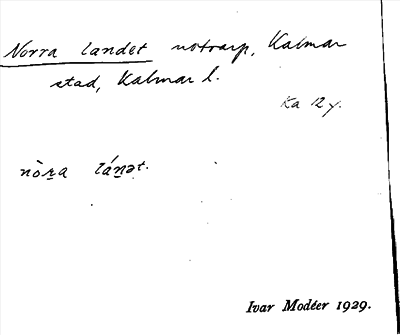 Norra landet notvarp, Kalmar
stad, Kalmar l.
Ka 12 y.
nòra lánət.
Ivar Modéer 1929.